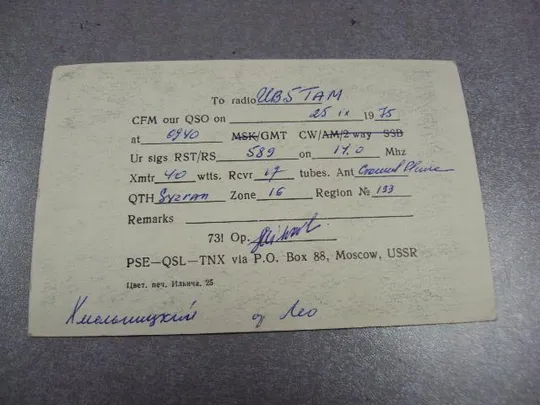 To radio UB5TAM
CFM our QSO on 25 IX 1975
at 0940 MSK/GMT CW/AM/2 way SSB
Ur sigs RST/RS 589 on 14.0 Mhz
Xmtr 40 wtts. Rcvr 17 tubes. Ant Ground Plane
QTH Syzran Zone 16 Region № 133
Remarks
73! Op.
PSE—QSL—TNX via P.O. Box 88, Moscow, USSR
Цвет. печ. Ильича. 25
Хмельницкий